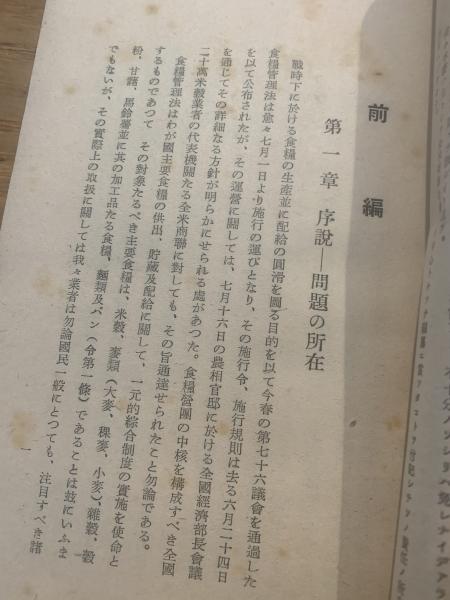 前編
第一章 序說―問題の所在
戰時下に於ける食糧の生產並に配給の圓滑を圖る目的を以て今春の第七十六議會を通過した
食糧管理法は愈々七月一日より施行の運びとなり、その施行令、施行規則は去る六月二十四日
を以て公布されたが、その運營に關しては、七月十六日の農相官邸に於ける全國經濟部長會議
を通じてその詳細なる方針が明らかにせられる處があつた。食糧營團の中核を構成すべき全國
二十萬米穀業者の代表機關たる全米商聯に對しても、その旨通達せられたこと勿論である。
食糧管理法はわが國主要食糧の供出、貯藏及配給に關して、一元的綜合制度の實施を使命と
するものであつて その對象たるべき主要食糧は、米穀、麥類（大麥、稞麥、小麥）、雜穀、穀
粉、甘藷、馬鈴薯並に其の加工品たる食糧、麵類及パン（令第一條）であることは玆にいふま
でもないが、その實際上の取扱に關しては我々業者は勿論國民一般にとつても、注目すべき諸
一